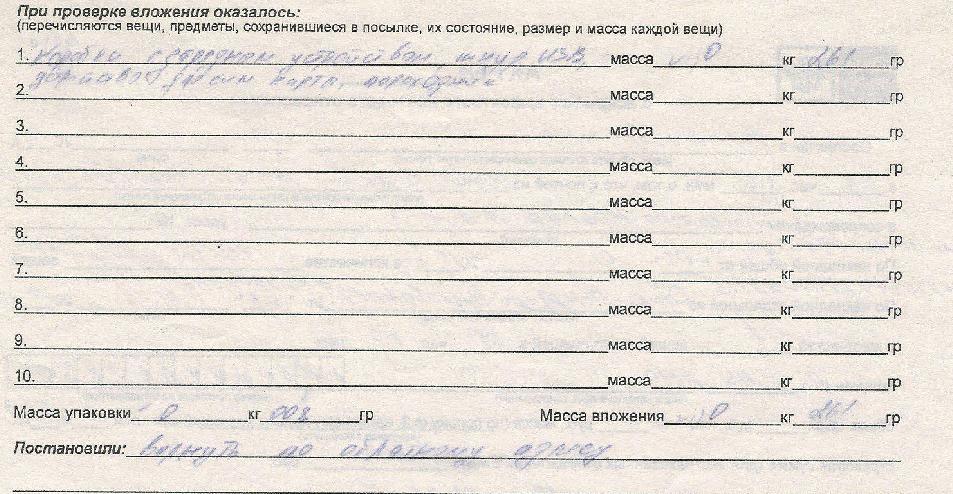 При проверке вложения оказалось:
(перечисляются вещи, предметы, сохранившиеся в посылке, их состояние, размер и масса каждой вещи)
1. Коробка с зарядным устройством, шнур USB, масса 0 кг 261 гр
для сим карты, переходник
2. масса кг гр
3. масса кг гр
4. масса кг гр
5. масса кг гр
6. масса кг гр
7. масса кг гр
8. масса кг гр
9. масса кг гр
10. масса кг гр
Масса упаковки 0 кг 008 гр Масса вложения 0 кг 261 гр
Постановили: вернуть по обратному адресу